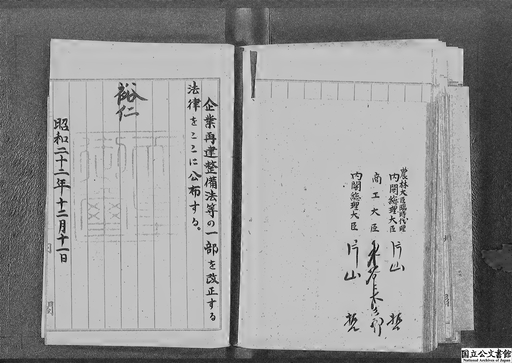 企業再建整備法等の一部を改正する
法律をここに公布する。
裕仁
昭和二十二年十二月十一日
農林大臣臨時代理
内閣総理大臣 片山 哲
商工大臣 水谷長三郎
内閣総理大臣 片山 哲
国立公文書館
National Archives of Japan